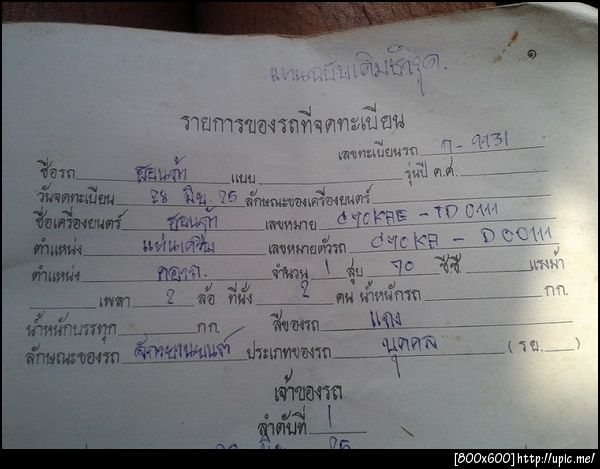 แทนฉบับเดิมชำรุด.
๑
รายการของรถที่จดทะเบียน
เลขทะเบียนรถ ก-9931
ชื่อรถ ฮอนด้า แบบ รุ่นปี ค.ศ.
วันจดทะเบียน 28 มิย. 25 ลักษณะของเครื่องยนตร์
ชื่อเครื่องยนตร์ ฮอนด้า เลขหมาย
ตำแหน่ง แท่นเครื่อง เลขหมายตัวรถ
ตำแหน่ง คอรถ. จำนวน 1 สูบ 70 ซีซี แรงม้า
เพลา 2 ล้อ ที่นั่ง 2 คน น้ำหนักรถ กก.
น้ำหนักบรรทุก กก. สีของรถ แดง
ลักษณะของรถ จักรยานยนต์ ประเภทของรถ บุคคล (รย. )
เจ้าของรถ
ลำดับที่ 1
25
[800x600]http://upic.me/